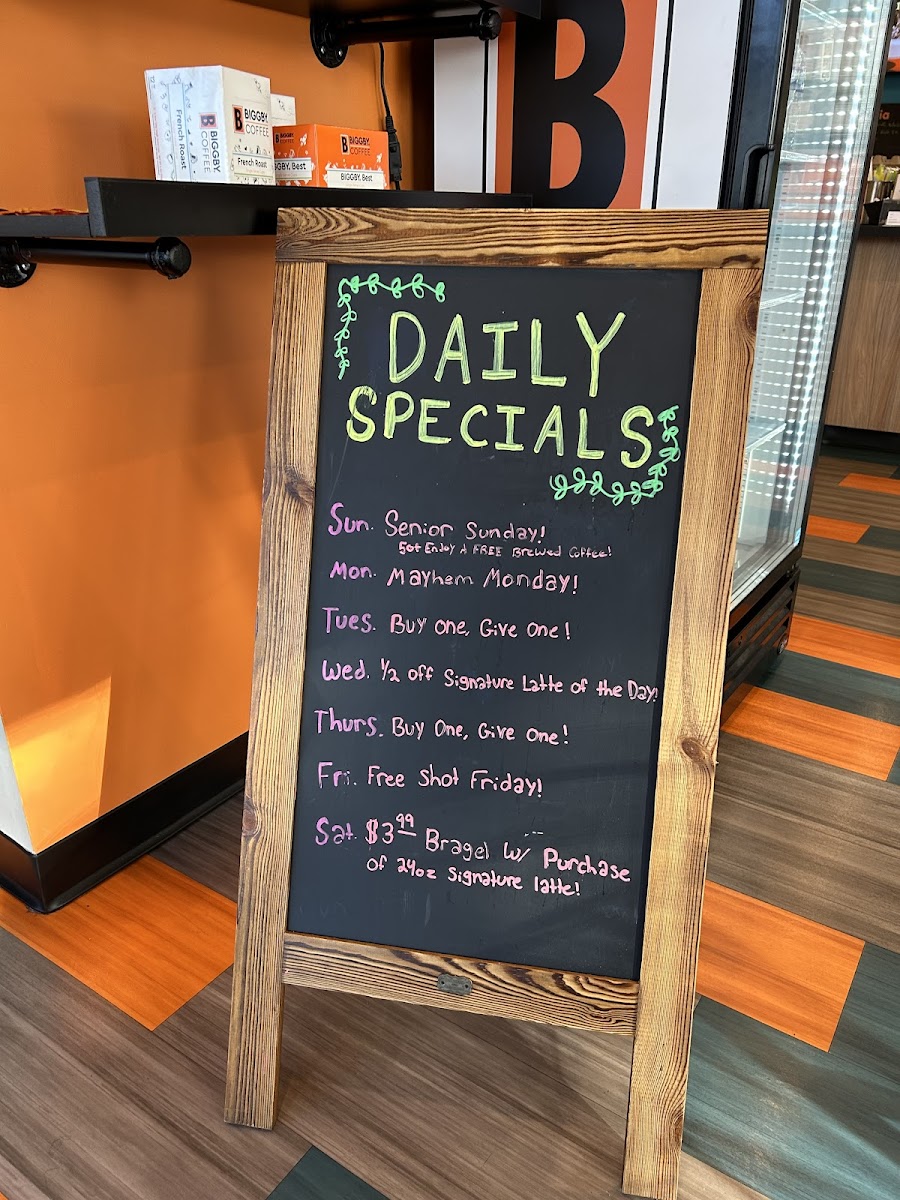 B BIGGBY COFFEE
French Roast
B BIGGBY COFFEE
French Roast
B BIGGBY COFFEE
BIGGBY. Best
B
DAILY
SPECIALS
Sun. Senior Sunday!
50+ Enjoy A FREE Brewed Coffee!
Mon. Mayhem Monday!
Tues. Buy one, Give One!
Wed. 1/2 off Signature Latte of the Day!
Thurs. Buy One, Give One!
Fri. Free Shot Friday!
Sat. $3.99 Bragel w/ Purchase
of 24oz Signature latte!